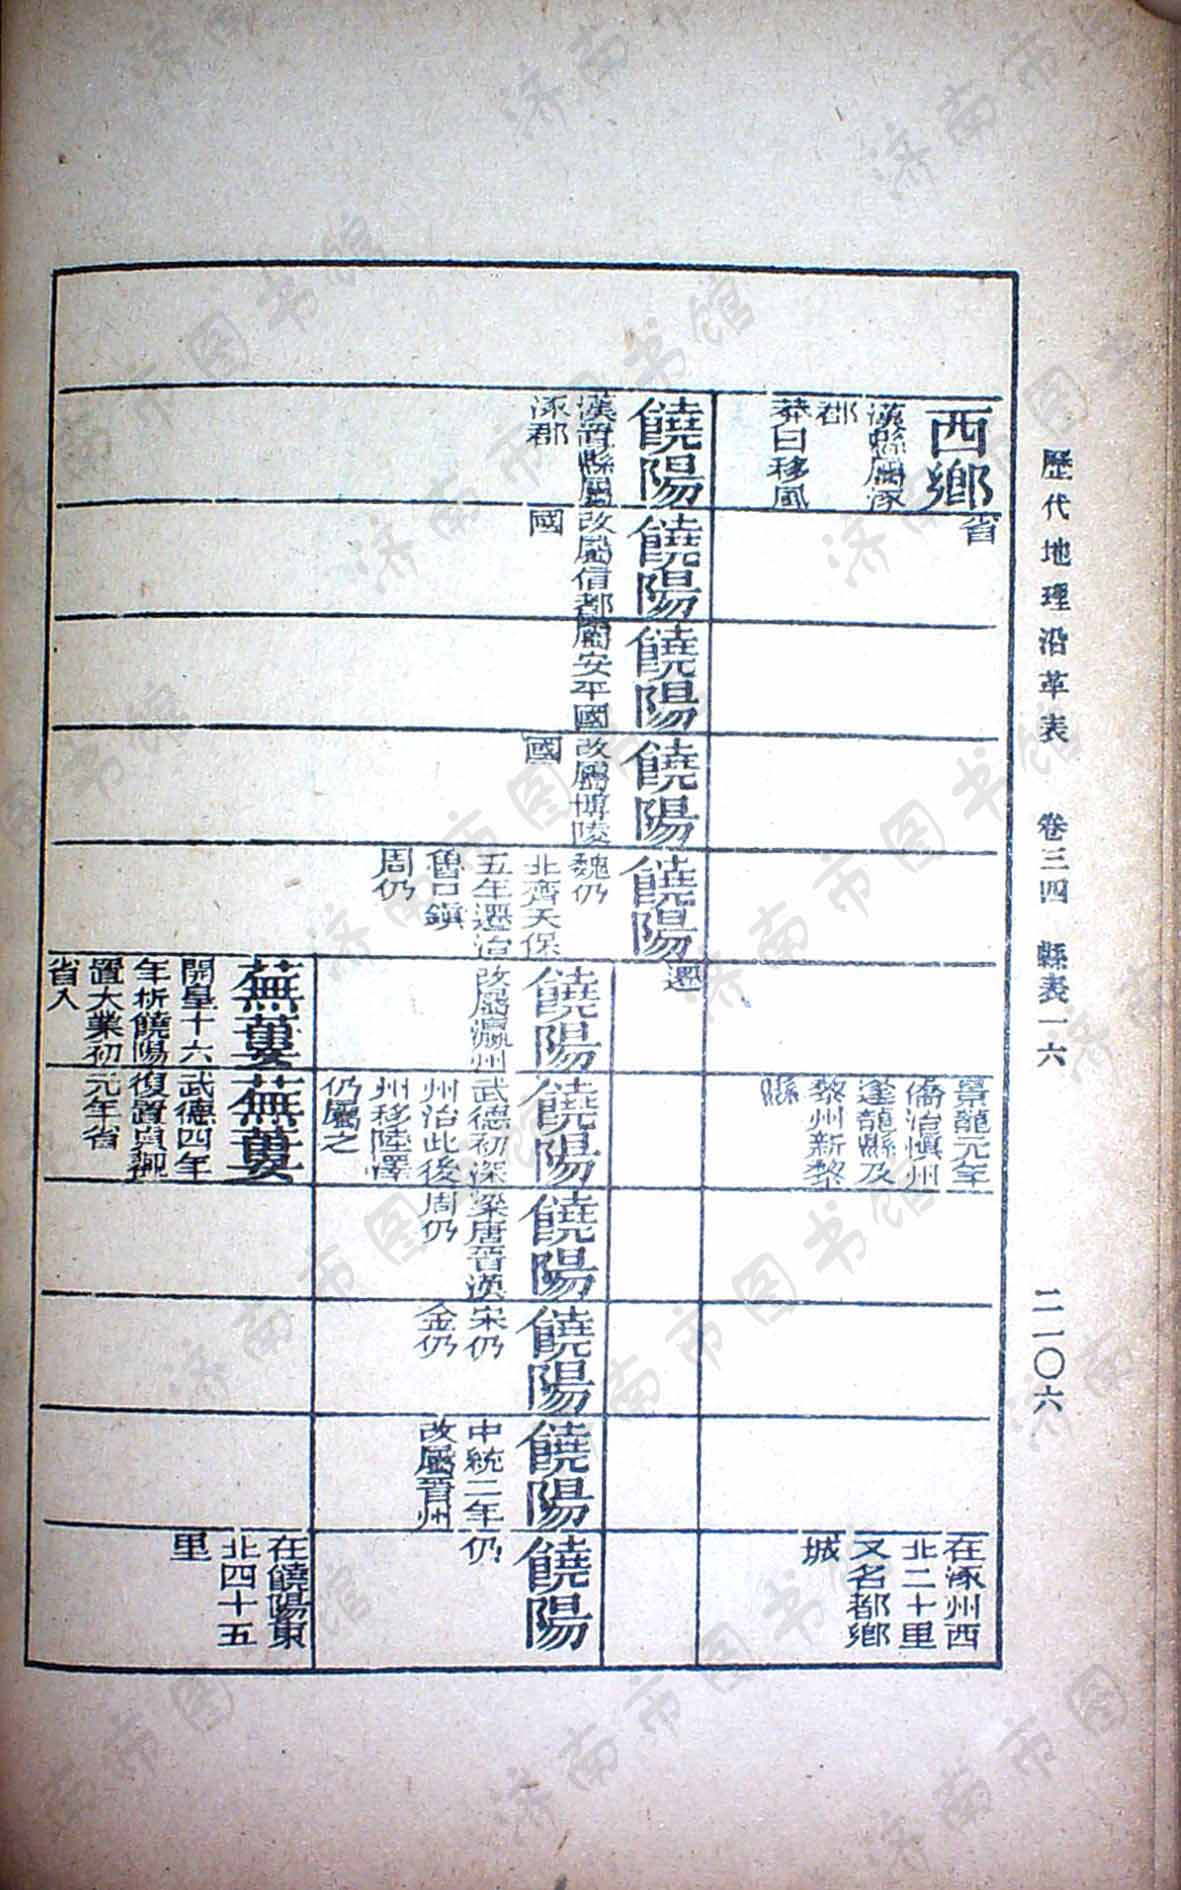 歷代地理沿革表　卷三四　縣表一六　二一〇六
西鄉
漢縣屬涿
郡
莽曰移風
省
景龍元年
僑治愼州
逢龍縣及
黎州新黎
縣
在涿州西
北二十里
又名都鄉
城
饒陽
漢置縣屬
涿郡
饒陽
改屬信都
國
饒陽
屬安平國
饒陽
改屬博陵
國
饒陽
魏仍
北齊天保
五年遷治
魯口鎭
周仍
遷
饒陽
改屬瀛州
饒陽
武德初深
州治此後
州移陸澤
仍屬之
饒陽
梁唐晉漢
周仍
饒陽
宋仍
金仍
饒陽
中統二年
改屬晉州
饒陽
仍
蕪蔞
開皇十六
年析饒陽
置大業初
省入
蕪蔞
武德四年
復置貞觀
元年省
在饒陽東
北四十五
里
济南市图书馆